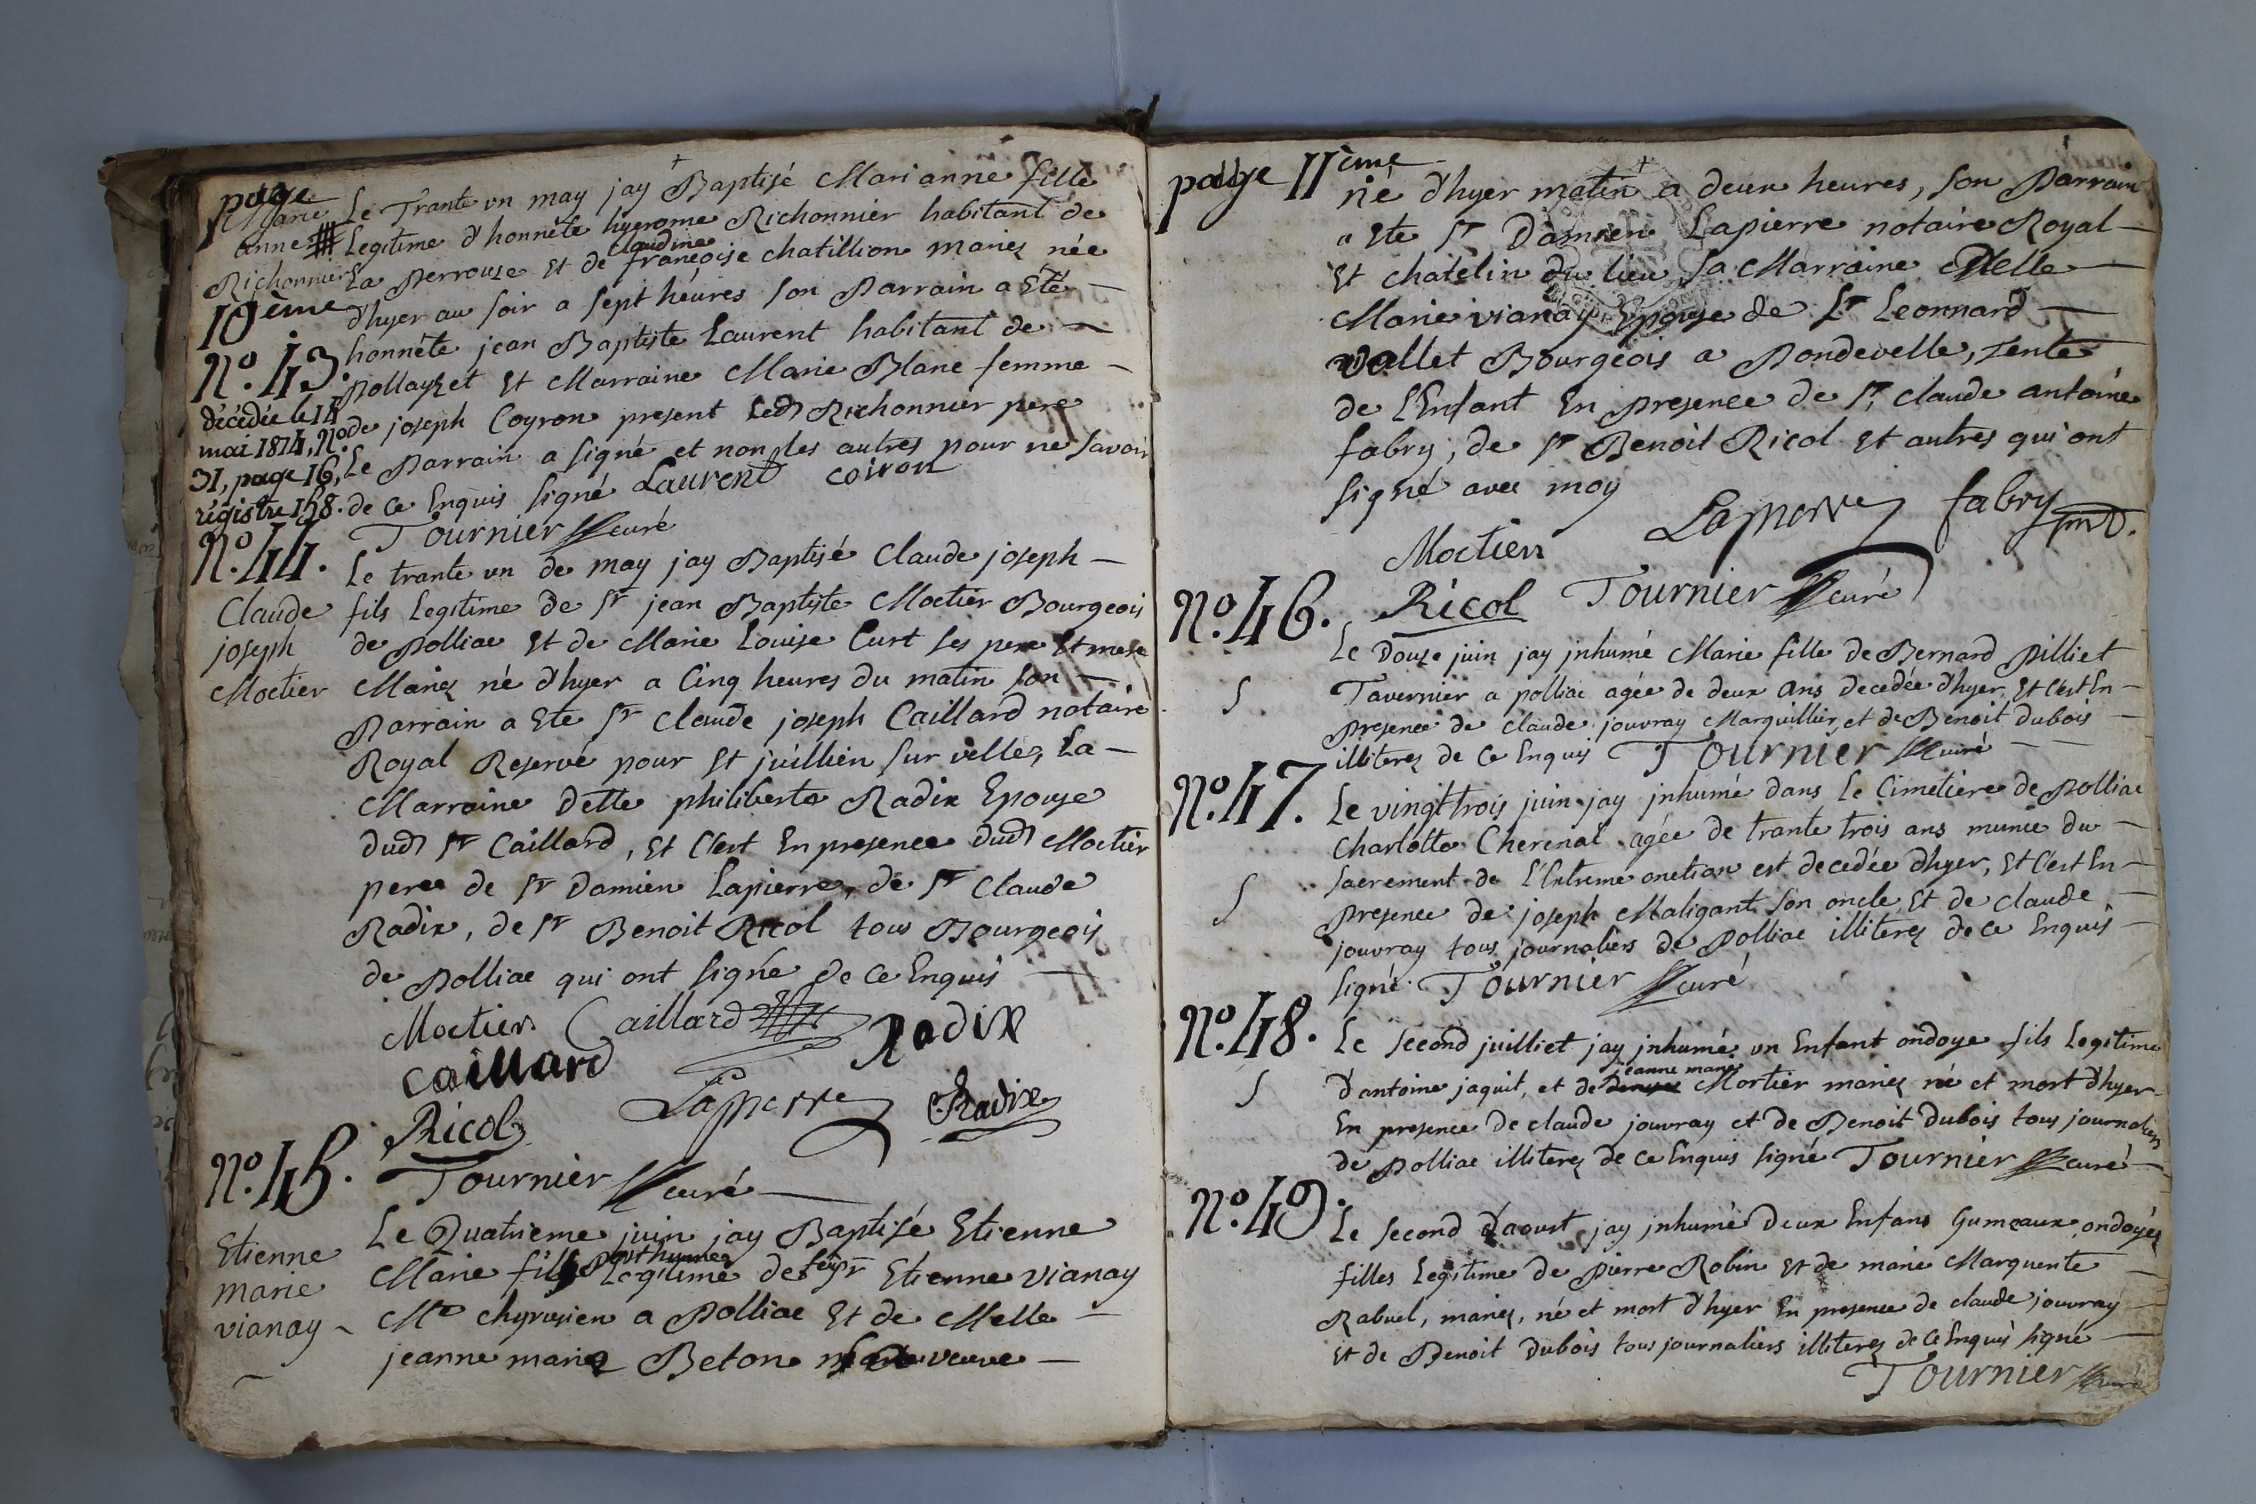 page
10ème
Marie
anne
Richonnier
Nº. 43.
décédée le 14
mai 1814, Nº
31, page 16,
régistre 158.
Le Trante un may jay Baptisé Marianne fille
Legitime d'honnête hyerome Richonnier habitant de
claudine
La Perrouse et de françoise chatillion mariez née
d'hyer au soir a sept héures son Parrain a Eté
honnête jean Baptiste Laurent habitant de
Pollayzet et Marraine Marie Blanc femme
de joseph Coyron present Led Richonnier pere
Le Parrain a signé et non les autres pour ne savoir
de ce Enquis signé Laurend coiron
Tournier curé
Nº. 44.
Claude
joseph
Moctier
Le trante un de may jay Baptisé Claude joseph
fils Legitime de Sr jean Baptiste Moctier Bourgeois
de Polliac et de Marie Louise Curt ses pere et mere
Mariez né d'hyer a Cinq heures du matin son
Parrain a Ete Sr claude joseph Caillard notaire
Royal Reservé pour st juillien sur velle, La
Marraine Delle philiberte Radix Epouse
dud Sr Caillard, et C'est En presence dud Moctier
pere de Sr Damien Lapierre, de Sr Claude
Radix, de Sr Benoit Ricol tous Bourgeois
de Polliac qui ont signé de ce Enquis
Moctier Caillard Radix
caillard
Ricol Lapierre Radix
Tournier curé
Nº. 45.
Etienne
marie
vianay
Le Quatrieme juin jay Baptisé Etienne
posthume
Marie fils Legitime de feu Sr Etienne vianay
Me chyrusien a Polliac et de Melle
jeanne marie Beton veuve
page 11ème
né d'hyer matin a deux heures, son Parrain
a Ete Sr Damien Lapierre notaire Royal
et chatelin du lieu sa Marraine Melle
Marie vianay Epouse de Sr Leonnard
vallet Bourgeois a Pondevelle, Tente
de L'Enfant En presence de Sr claude antoine
fabry, de Sr Benoit Ricol et autres qui ont
signé avec moy
Lapierre fabry
Moctier
Ricol Tournier curé
Nº. 46.
S
Le Douze juin jay jnhumé Marie fille de Bernard Pilliet
Tavernier a polliac agée de deux ans decedée d'hyer, et C'est En
presence de Claude jouvray Marguillier et de Benoit Dubois
illiterez de ce Enquis Tournier curé
Nº. 47.
S
Le vingt trois juin jay jnhumé dans Le Cimetiere de Polliac
Charlotte Cherenal agée de trante trois ans munie du
sacrement de L'Extreme onction est decedée d'hyer, et C'est En
presence de joseph Maligant son oncle et de claude
jouvray tous journaliers de Polliac illiterez de ce Enquis
signé Tournier curé
Nº. 48.
S
Le second juilliet jay jnhumé un Enfant ondoye fils Legitime
jeanne marie
d'antoine jaquit, et de Mortier mariez né et mort d'hyer
En presence de claude jouvray et de Benoit Dubois tous journaliers
de Polliac illiterez de ce Enquis signé Tournier curé
Nº. 49.
Le second d'aoust jay jnhumé Deux Enfans Gumeaux ondoyés
filles Legitime de Pierre Robin et de marie Marguerite
Rabuel, mariez, né et mort d'hyer En presence de claude jouvray
et de Benoit Dubois tous journaliers illiterez de ce Enquis signé
Tournier curé